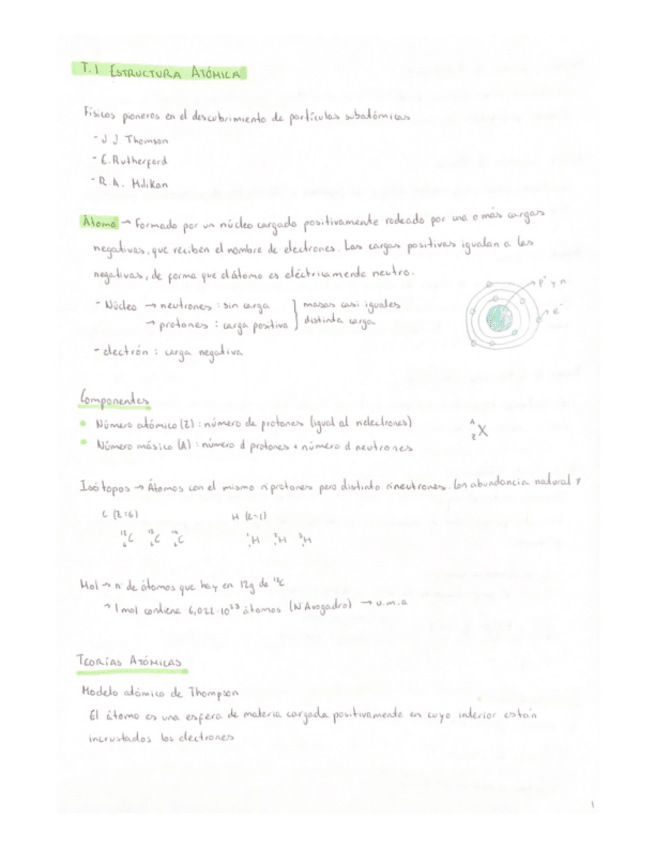 T.1 ESTRUCTURA ATÓMICA
Físicos pioneros en el descubrimiento de partículas subatómicas
- J J Thomson
- E. Rutherford
- R.A. Milikan
Átomo → Formado por un núcleo cargado positivamente rodeado por una o más cargas
negativas, que reciben el nombre de electrones. Las cargas positivas igualan a las
negativas, de forma que el átomo es eléctricamente neutro.
- Núcleo → neutrones : sin carga } masas casi iguales
→ protones : carga positiva } distinta carga
p⁺ y n
e⁻
- electrón : carga negativa
Componentes
Número atómico (Z) : número de protones (igual al nº electrones)
Número másico (A) : número d protones + número d neutrones
ᴬ_Z X
Isótopos → Átomos con el mismo nº protones pero distinto nº neutrones. Con abundancia natural
C (Z=6) H (Z=1)
¹²₆C ¹³₆C ¹⁴₆C ¹₁H ²₁H ³₁H
Mol → nº de átomos que hay en 12g de ¹²C
→ 1 mol contiene 6,022·10²³ átomos (N Avogadro) → u.m.a
TEORÍAS ATÓMICAS
Modelo atómico de Thompson
El átomo es una esfera de materia cargada positivamente en cuyo interior están
incrustados los electrones
1